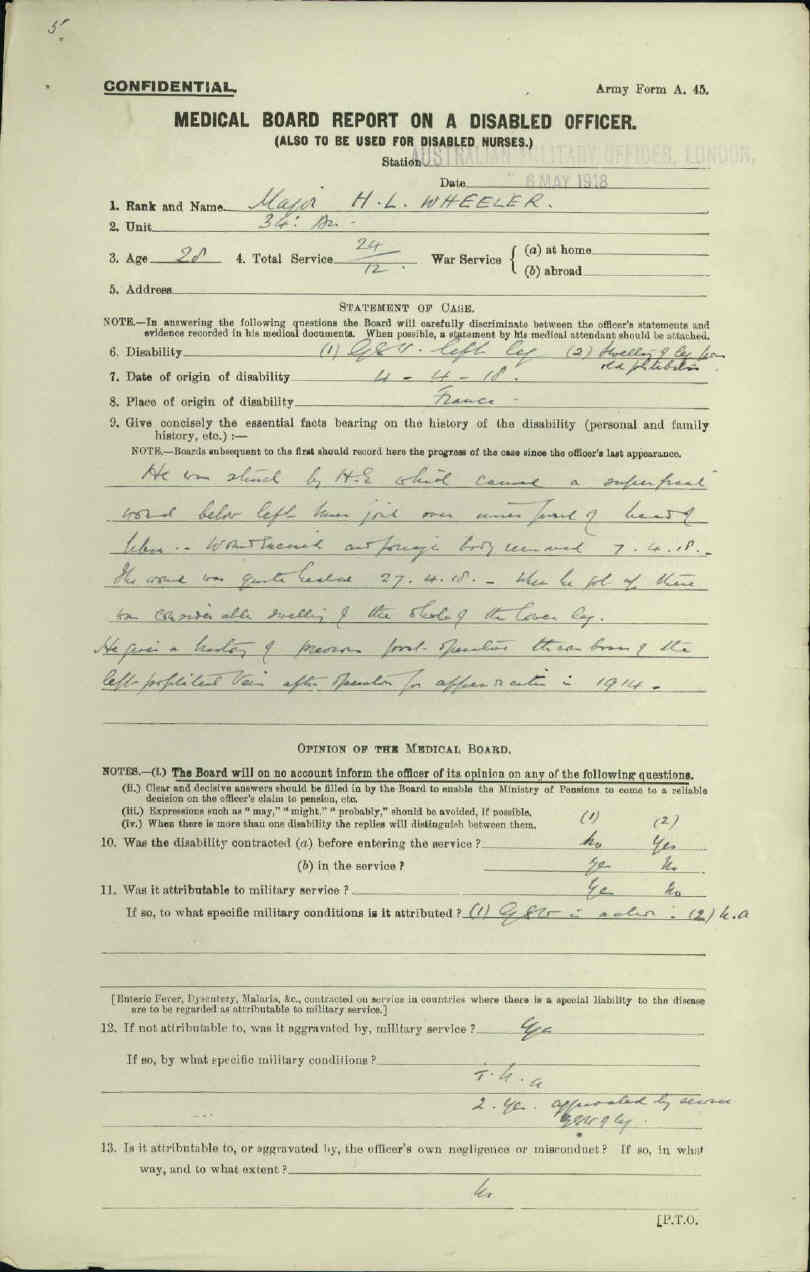 5
CONFIDENTIAL.
Army Form A. 45.
MEDICAL BOARD REPORT ON A DISABLED OFFICER.
(ALSO TO BE USED FOR DISABLED NURSES.)
Station AUSTRALIAN MILITARY OFFICES, LONDON,
Date 6 MAY 1918
1. Rank and Name Major H. L. WHEELER.
2. Unit 34. Bn -
3. Age 28 4. Total Service 24/12. War Service { (a) at home
(b) abroad
5. Address
STATEMENT OF CASE.
NOTE.—In answering the following questions the Board will carefully discriminate between the officer's statements and
evidence recorded in his medical documents. When possible, a statement by his medical attendant should be attached.
6. Disability (1) G.S.W. left leg (2) Swelling of leg from
old phlebitis.
7. Date of origin of disability 4 - 4 - 18.
8. Place of origin of disability France -
9. Give concisely the essential facts bearing on the history of the disability (personal and family
history, etc.) :—
NOTE.—Boards subsequent to the first should record here the progress of the case since the officer's last appearance.
He was struck by H.E which caused a superficial
wound below left knee joint over inner part of head of
tibia. - Wound excised and foreign body removed 7.4.18. -
The wound was quite healed 27.4.18. - When he got up there
was considerable swelling of the whole of the lower leg.
He gives a history of previous post-operative thrombosis of the
left popliteal vein after operation for appendicitis in 1914 -
OPINION OF THE MEDICAL BOARD.
NOTES.—(i.) The Board will on no account inform the officer of its opinion on any of the following questions.
(ii.) Clear and decisive answers should be filled in by the Board to enable the Ministry of Pensions to come to a reliable
decision on the officer's claim to pension, etc.
(iii.) Expressions such as "may," "might," "probably," should be avoided, if possible.
(iv.) When there is more than one disability the replies will distinguish between them.
(1) (2)
10. Was the disability contracted (a) before entering the service ? No Yes
(b) in the service ? Yes No
11. Was it attributable to military service ? Yes No
If so, to what specific military conditions is it attributed ? (1) G.S.W in action : (2) N.a
[Enteric Fever, Dysentery, Malaria, &c., contracted on service in countries where there is a special liability to the disease
are to be regarded as attributable to military service.]
12. If not attributable to, was it aggravated by, military service ? Yes
If so, by what specific military conditions ?
1. N. a
2. Yes. aggravated by service
GSW of leg.
13. Is it attributable to, or aggravated by, the officer's own negligence or misconduct ? If so, in what
way, and to what extent ?
No
[P.T.O.